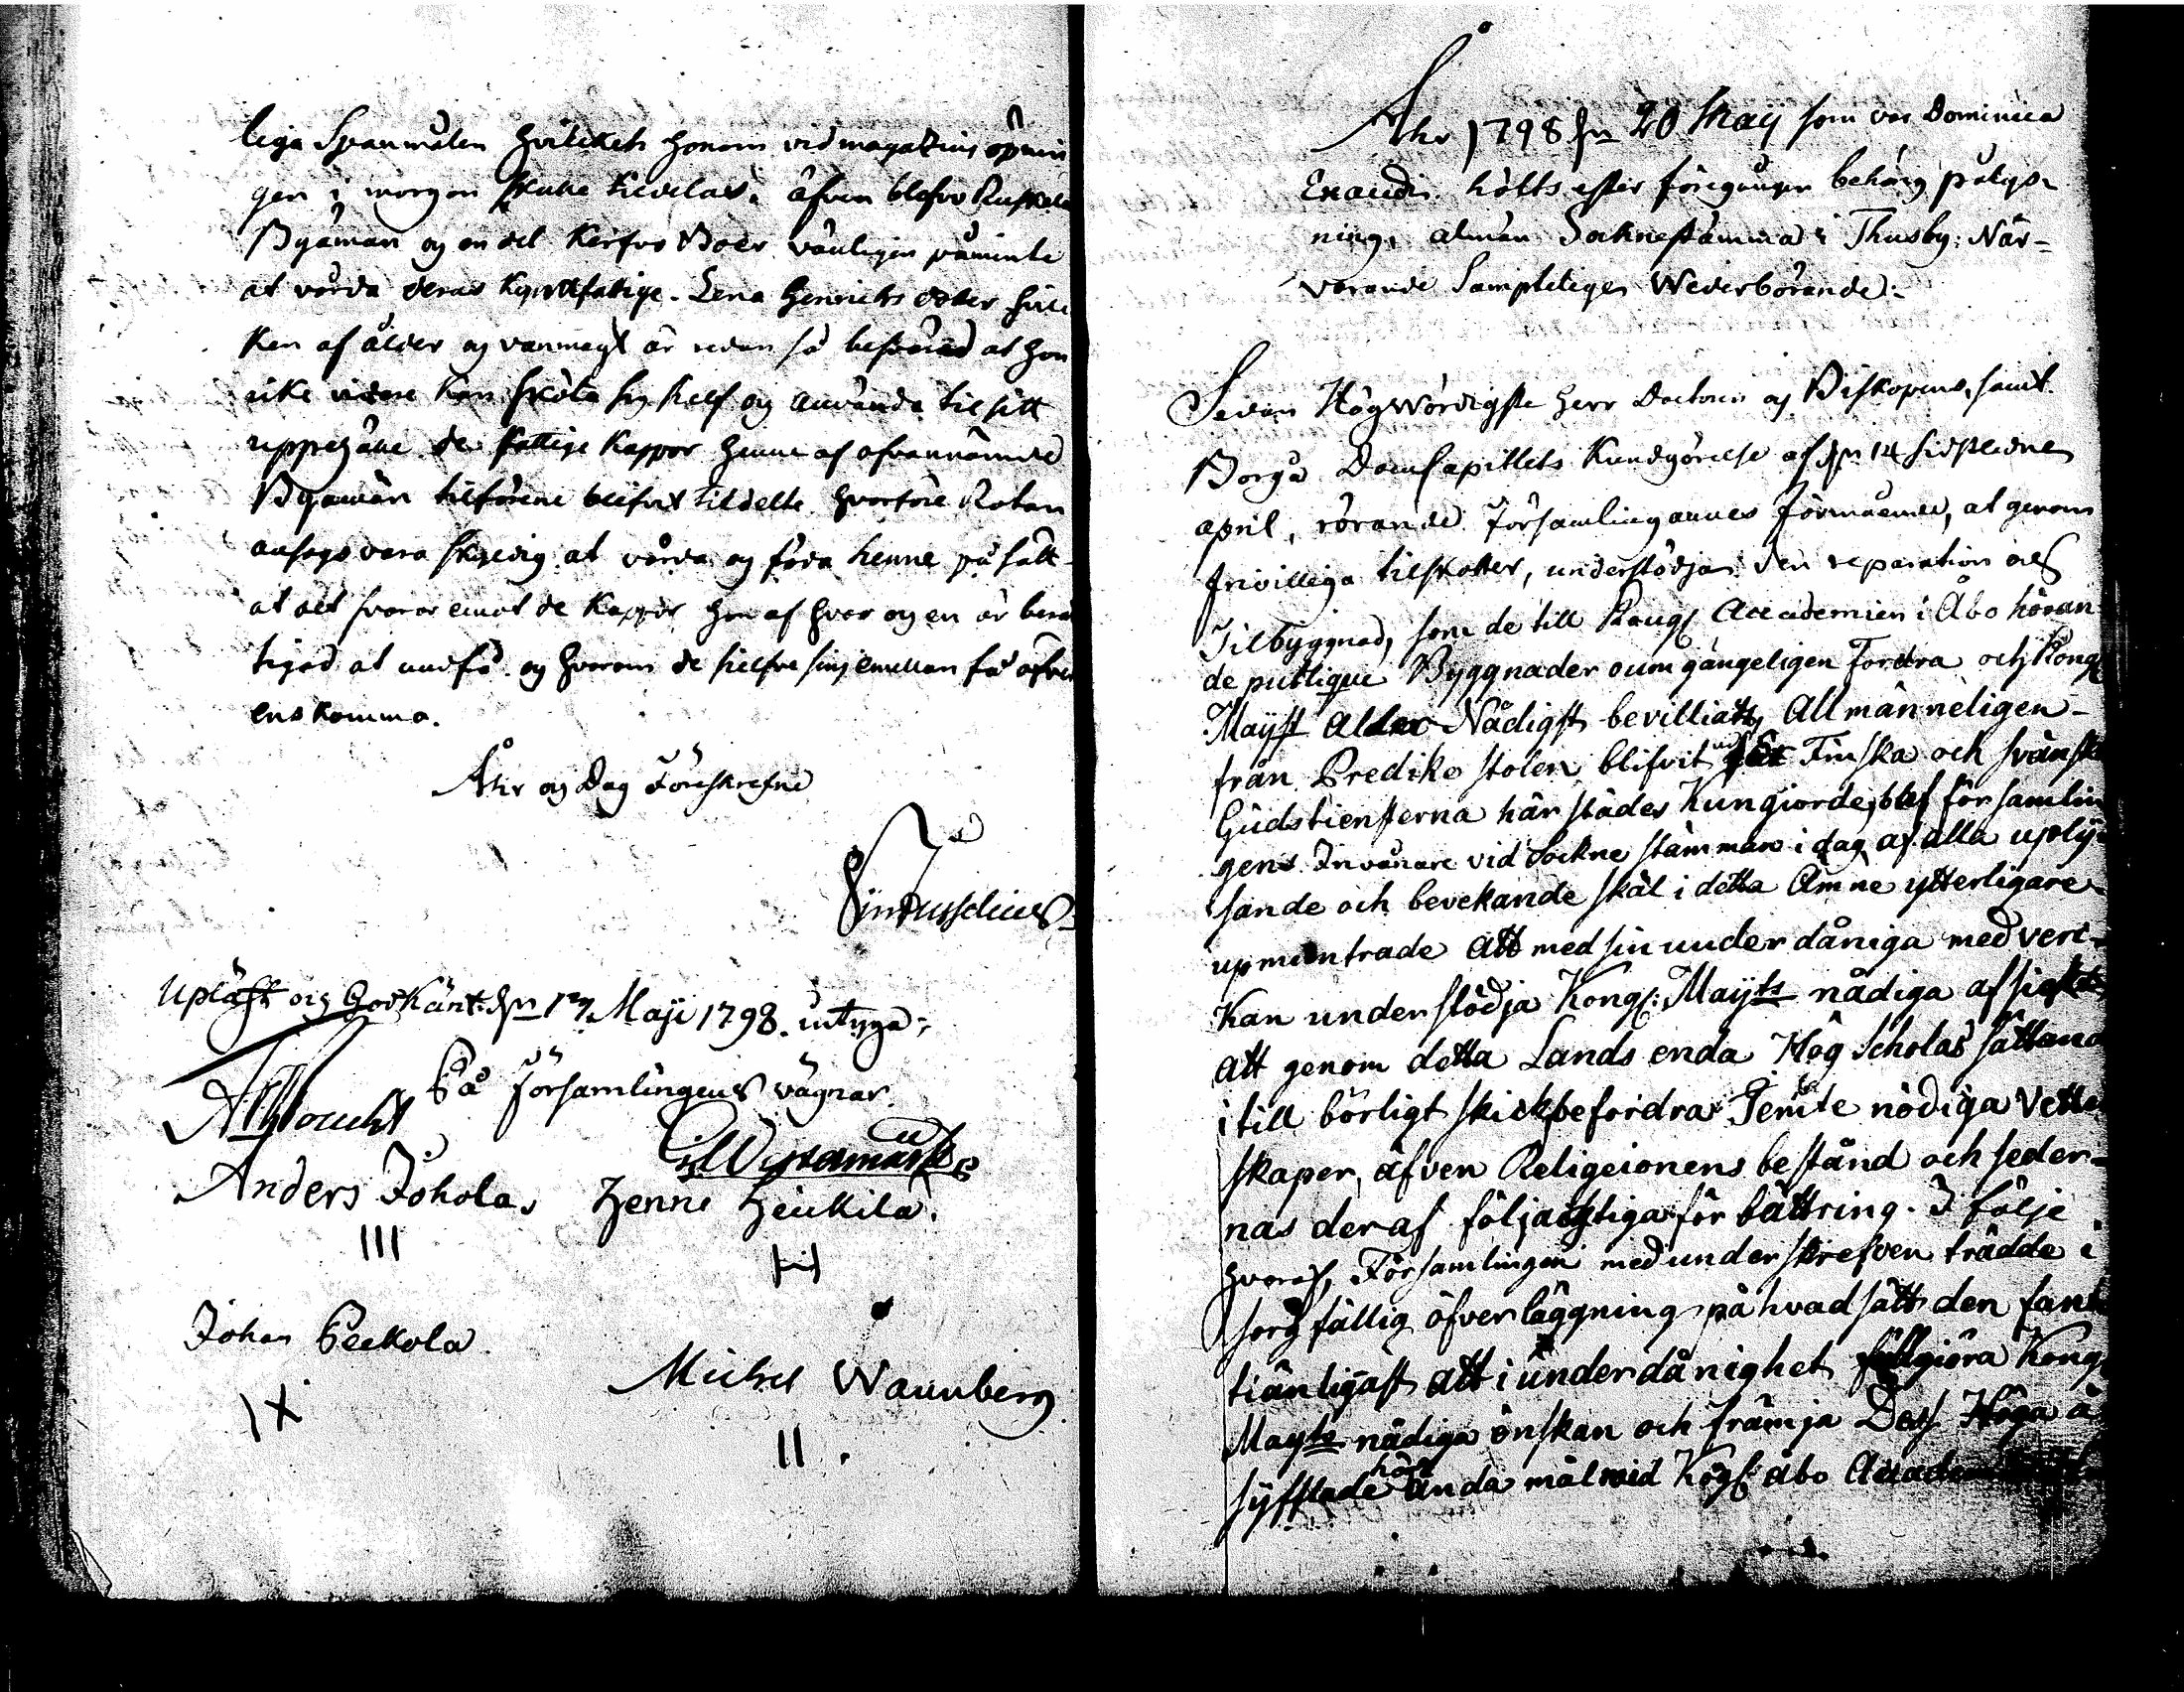 lige Spanmålen hvilcket honom vid magazins öpnin
gen i morgon skulle tildelas. äfven blefvo Ruskela
Byamän og en del Kerfvo Boer vänligen påminte
at vårda deras Kyrckfattige. Lena Henrichs dotter hvil
ken af ålder og vanmagt är redan så besvärad at hon
icke vidare kan sköta sig sielf og använda til sitt
uppehälle de fattige Kappor henne af ofvannämde
Byamän tilförene blifvit tildelte hvarföre Rotan
ansågs vara skyldig at vårda og föda henne på sätt
at det svarar emot de Kappor hon af hvar og en är berä
tigad at undfå og hvarom de sielfve sins emellan få öfver
ens komma.
Åhr og Dag Föreskrefne
Upläst og Godkänt dn 17 Maji 1798. intyga;
På Församlingens vägnar.
Anders Johola. Henric Heickilä.
III
Johan Peckola.
IX
Michel Wannberg
II.
Åhr 1798 dn 20 Maij som var Dominica
Exaudi hölts efter föregången behörig pålys-
ning, alman Sockne stämma i Thusby. När-
varande Samptelige Wederbörande:
Sedan Högwördigste Herr Doctorn og Biskopens, samt
Borgå DomCapittels Kundgörelse af dn 14 sidstledne
april, rörande Församlingarnes förmående, at genom
frivilliga tilskotter, understödja den reparation och
Tilbyggnad, som de till Kongl Academien i Åbo höran
de publique Byggnader oumgängeligen Fordra och Kongl
Mayst Aldra Nådigst bevilliatt, Allmänneligen
från Predikostolen blifvit Finska och svänska
Gudstiensterna härstädes Kungiorde, blef församlin
gens Invånare vid Sockne stämman i dag af alla uply-
sande och bevekande skäl i detta Ämne ytterligare
upmuntrade Att med sin underdåniga medver-
kan understödja Kongl: Mayts nådiga afsigter
att genom detta Lands enda Hög Scholas sättand
i till börligt skick befordra Jemte nödiga Vette
skaper, äfven Religeionens bestånd och seder-
nas deraf följacktiga för bättring. I följe
hvaraf, Församlingen med underskrefven trädde i
sorgfällig öfverläggning på hvad sätt den fant
tiänligast att i underdånighet fullgiöra Kongl
Mayts nådiga önskan och främja Dess Höga å
syfftade ända mål vid Kogl: Åbo